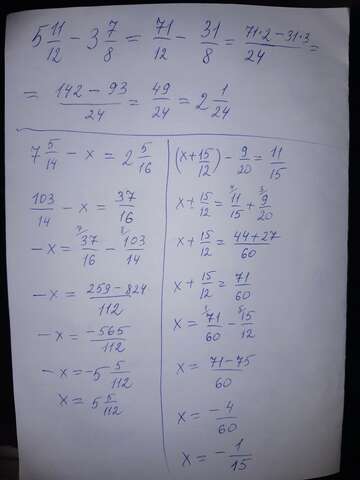 5 11/12 - 3 7/8 = 71/12 - 31/8 = (71·2 - 31·3)/24 =
= (142 - 93)/24 = 49/24 = 2 1/24
7 5/14 - x = 2 5/16
103/14 - x = 37/16
-x = 37/16 - 103/14
-x = (259 - 824)/112
-x = -565/112
-x = -5 5/112
x = 5 5/112
(x + 15/12) - 9/20 = 11/15
x + 15/12 = 11/15 + 9/20
x + 15/12 = (44 + 27)/60
x + 15/12 = 71/60
x = 71/60 - 15/12
x = (71 - 75)/60
x = -4/60
x = -1/15